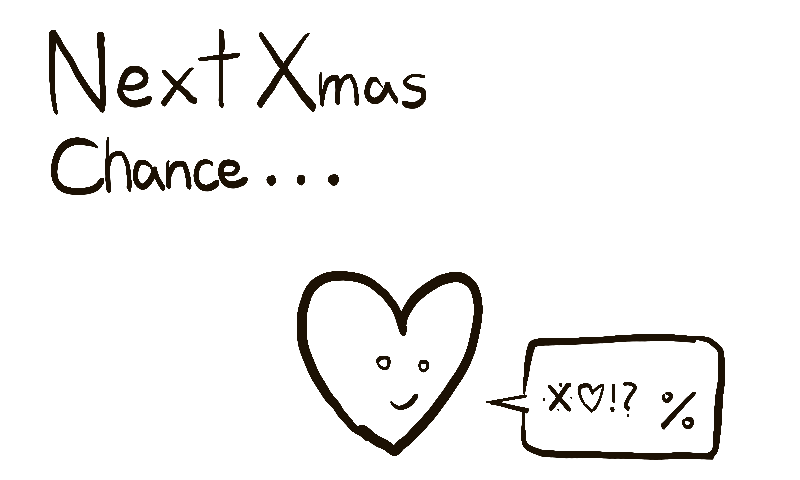 Next Xmas
Chance...
X♡!? %